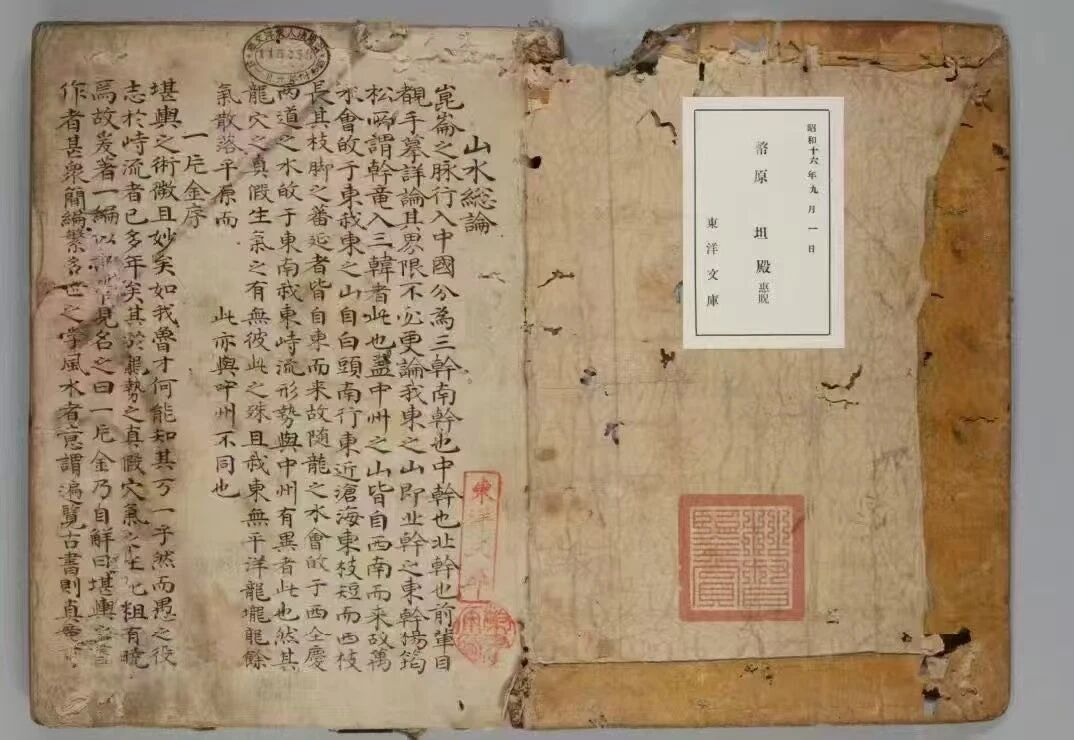 昭和十六年九月一日
幣原 坦殿惠贶
東洋文庫
山水総論
崑崙之脉行入中國分為三幹南幹也中幹也北幹也前軰目
覩手摹詳論其界限不必更論我東之山即北幹之東幹楊筠
松所謂幹竜入三韓者此也盖中州之山皆自西南而来故萬
水會的于東我東之山自白頭南行東近滄海東枝短而西枝
長其枝脚之蕃延者皆自東而来故随龍之水會的于西全慶
两道之水的于東南我東峙流形勢與中州有異者此也然其
龍穴之真假生氣之有無彼此之殊且我東無平洋龍壠龍餘
氣散落平原而 此亦與中州不同也
一片金序
堪輿之術微且妙矣如我魯才何能知其万一乎然而愚之役
志於峙流者已多年矣其於龍勢之真假穴氣之生 粗有曉
焉故爰著一編以 管見名之曰一片金乃自解曰堪輿
作者甚衆簡編繁 世之学風水者意謂遍覧古書則真
東洋文庫